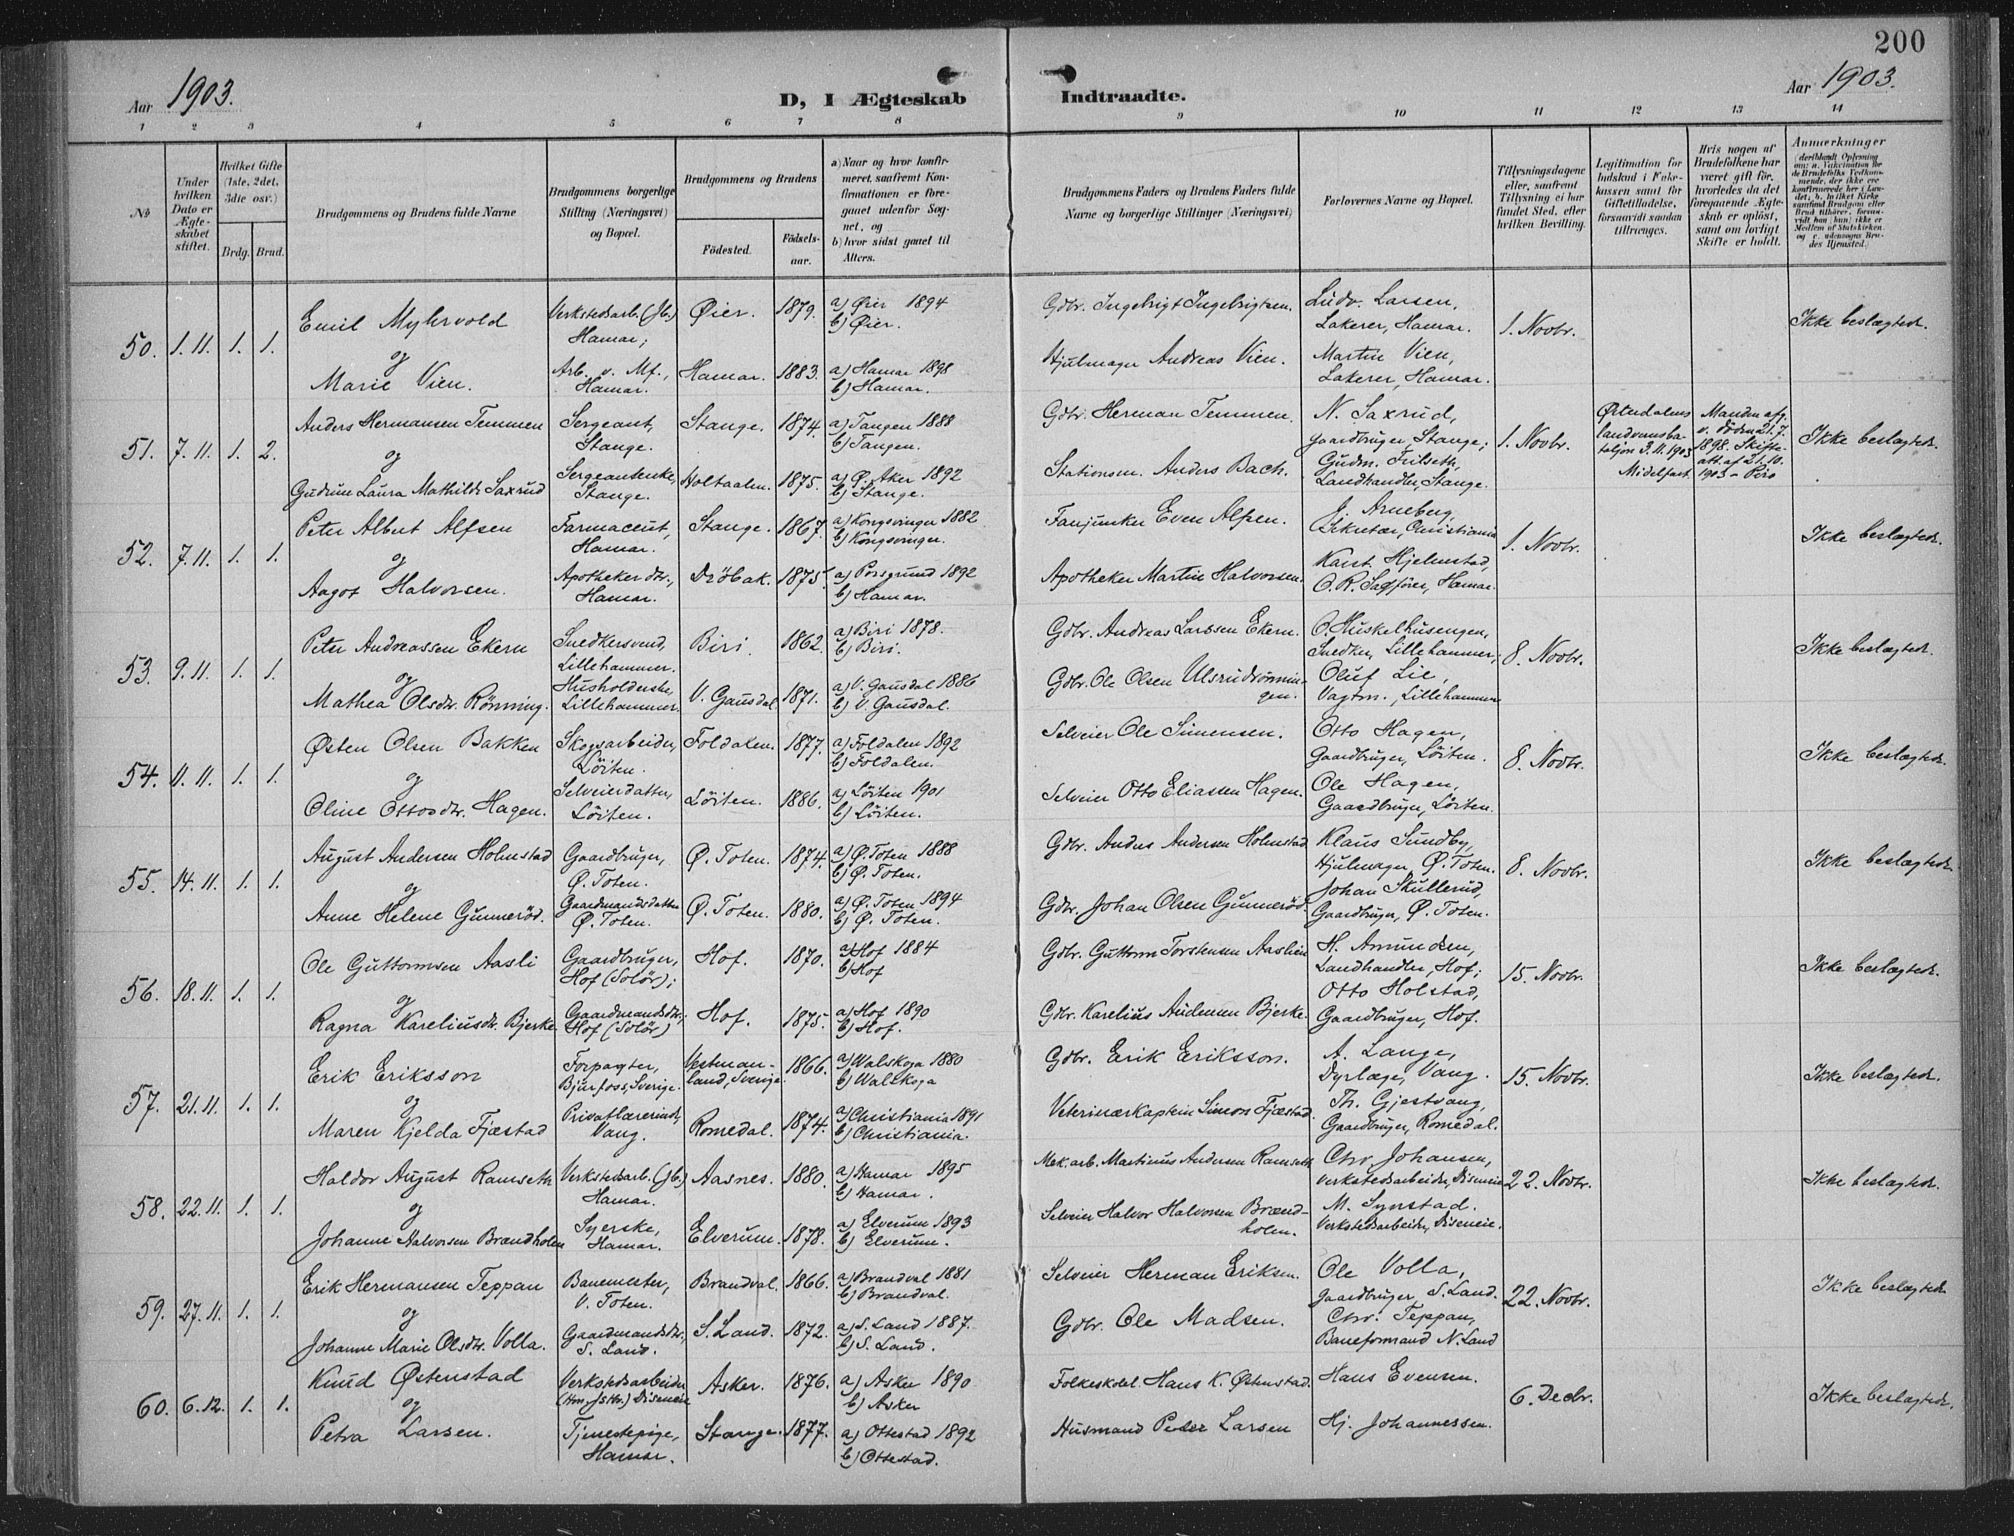 200
Aar 1903.
D, I Ægteskab Indtraadte.
Aar 1903.
1 2 3 4 5 6 7 8 9 10 11 12 13 14
No
Under hvilken Dato er Ægteskabet stiftet.
Hvilket Gifte (1ste, 2det, 3die osv.)
Brdg. Brud.
Brudgommens og Brudens fulde Navne
Brudgommens borgerlige Stilling (Næringsvei) og Bopæl.
Brudgommens og Brudens
Fødested.
Fødselsaar.
a) Naar og hvor konfirmeret, saafremt Konfirmationen er foregaaet udenfor Sognet, og
b) hvor sidst gaaet til Alters.
Brudgommens Faders og Brudens Faders fulde Navne og borgerlige Stillinger (Næringsvei)
Forlovernes Navne og Bopæl.
Tillysningsdagene eller, saafremt Tillysning ei har fundet Sted, efter hvilken Bevilling.
Legitimation for Indskud i Enkekassen samt for Giftetilladelse, forsaavidt saadan tiltrænges.
Hvis nogen af Brudefolkene har været gift før, hvorledes da det foregaaende Ægteskab er opløst, samt om lovligt Skifte er holdt.
Anmærkninger
50. 1.11. 1. 1.
Emil Myhrvold
og
Marie Vien.
Verkstedsarb. (Jb.) Hamar;
Arb. v. Mf., Hamar.
Øier. 1879. a) Øier 1894 b) Øier.
Hamar. 1883. a) Hamar 1898 b) Hamar.
Gdbr. Ingebrigt Ingebrigtsen.
Hjulmager Andreas Vien.
Ludv. Larsen, Lakerer, Hamar.
Martin Vien, Lakerer, Hamar.
1. Novbr.
Ikke beslægtede.
51. 7.11. 1. 2.
Anders Hermansen Temmen
og
Gudrun Laura Mathilde Saxrud
Sergeant, Stange.
Sergeantenke, Stange.
Stange. 1874. a) Tangen 1888 b) Tangen.
Holtaalen. 1875. a) Ø. Aker 1892 b) Stange.
Gdbr. Herman Temmen.
Stationsm. Anders Bach.
N. Saxrud, gaardbruger, Stange;
Gudm. Frilseth, Landhandler, Stange.
1. Novbr.
Østerdalens landvernsbataljon 3.11.1903 Midelfart
Manden afg. v. Døden 21.7. 1898. Skifteatt. af 21.10. 1903 - Piro
Ikke beslægtede.
52. 7.11. 1. 1.
Peter Albert Alfsen
og
Aagot Halvorsen.
Farmaceut, Hamar.
Apotheker dtr., Hamar.
Stange. 1867. a) Kongsvinger 1882 b) Kongsvinger.
Drøbak. 1875. a) Porsgrund 1892 b) Hamar.
Fanjunker Even Alfsen.
Apotheker Martin Halvorsen.
J. Arneberg, Sekretær, Christiania
Karst. Hjelmstad, O.R. Sagfører, Hamar.
1. Novbr.
Ikke beslægtede.
53. 9.11. 1. 1.
Peter Andreassen Ekern
og
Mathea Olsdtr. Rønning.
Snedkersvend, Lillehammer.
Husholderske, Lillehammer.
Biri. 1862. a) Biri 1878. b) Biri.
V. Gausdal 1871. a) V. Gausdal 1886 b) V. Gausdal.
Gdbr. Andreas Larssen Ekern.
Gdbr. Ole Olsen Ulsrudrønningen.
O. Huskelhusengen, Snedker, Lillehammer;
Oluf Lie, Vagtm., Lillehammer
8. Novbr.
Ikke beslægtede.
54. 11.11. 1. 1.
Østen Olsen Bakken
og
Oline Ottosdtr. Hagen.
Skogsarbeider, Løiten.
Selveierdatter, Løiten.
Foldalen. 1877. a) Foldalen 1892 b) Foldalen.
Løiten. 1886. a) Løiten 1901 b) Løiten.
Selveier Ole Simensen.
Selveier Otto Eliassen Hagen.
Otto Hagen, Gaardbruger, Løiten.
Ole Hagen, Gaardbruger, Løiten.
8. Novbr.
Ikke beslægtede.
55. 14.11. 1. 1.
August Andersen Holmstad
og
Anne Helene Gunnerød.
Gaardbruger, Ø. Toten.
Gaardmandsdatter Ø. Toten.
Ø. Toten. 1874. a) Ø. Toten 1888 b) Ø. Toten.
Ø. Toten. 1880. a) Ø. Toten 1894 b) Ø. Toten.
Gdbr. Anders Andersen Holmstad
Gdbr. Johan Olsen Gunnerød.
Klaus Sundby, Hjulmager, Ø. Toten.
Johan Skullerud, Gaardbruger, Ø. Toten.
8. Novbr.
Ikke beslægtede.
56. 18.11. 1. 1.
Ole Guttormsen Aasli
og
Ragna Kareliusdtr. Bjerke.
Gaardbruger, Hof (Solør);
Gaardmandsdtr., Hof (Solør)
Hof. 1870. a) Hof 1884 b) Hof
Hof. 1875. a) Hof 1890 b) Hof.
Gdbr. Guttorm Torstensen Aaslien
Gdbr. Karelius Audensen Bjerke.
H. Amundsen, Landhandler, Hof;
Otto Holstad, Gaardbruger, Hof.
15. Novbr.
Ikke beslægtede.
57. 21.11. 1. 1.
Erik Eriksson
og
Maren Kjelda Fjæstad
Forpagter, Bjurfoss, Sverige.
Privatlærerinde, Vang.
Vestmanland, Sverige. 1866. a) Walskoga 1880 b) Walskoga
Romedal. 1874. a) Christiania 1891 b) Christiania.
Gdbr. Erik Eriksson.
Veterinærkaptein Simon Fjæstad.
A. Lange, Dyrlæge, Vang.
Th. Gjestvang, Gaardbruger, Romedal.
15. Novbr.
Ikke beslægtede.
58. 22.11. 1. 1.
Haldor August Ramseth
og
Johanne Halvorsen Brændholen
Verkstedsarb. (Jb.) Hamar.
Syerske, Hamar.
Aasnes. 1880. a) Hamar 1895 b) Hamar.
Elverum. 1878. a) Elverum 1893 b) Elverum.
Mek. arb. Martinius Andersen Ramseth
Selveier Halvor Halvorsen Brændholen.
Chr. Johansen, Verkstedsarbeider, Diseneie
M. Synstad. Verkstedsarbeider, Diseneie.
22. Novbr.
Ikke beslægtede.
59. 27.11. 1. 1.
Erik Hermansen Teppan
og
Johanne Marie Olsdtr. Volla.
Banemester, V. Toten.
Gaardmandsdtr., S. Land.
Brandval. 1866. a) Brandval 1881 b) Brandval.
S. Land. 1872. a) S. Land 1887. b) S. Land.
Selveier Herman Eriksen.
Gdbr. Ole Madsen.
Ole Volla, gaardbruger, S. Land.
Chr. Teppan, Baneformand N. Land
22. Novbr.
Ikke beslægtede.
60. 6.12. 1. 1.
Knud Østenstad
og
Petra Larsen.
Verkstedsarbeider Diseneie
Tjenestepige, Hamar.
Asker. 1876. a) Asker 1890 b) Asker
Stange. 1877. a) Ottestad 1892 b) Ottestad.
Folkeskolel. Hans K. Østenstad.
Husmand Peder Larsen
Hans Evensen.
Hj. Johannessen.
6. Decbr.
Ikke beslægtede.